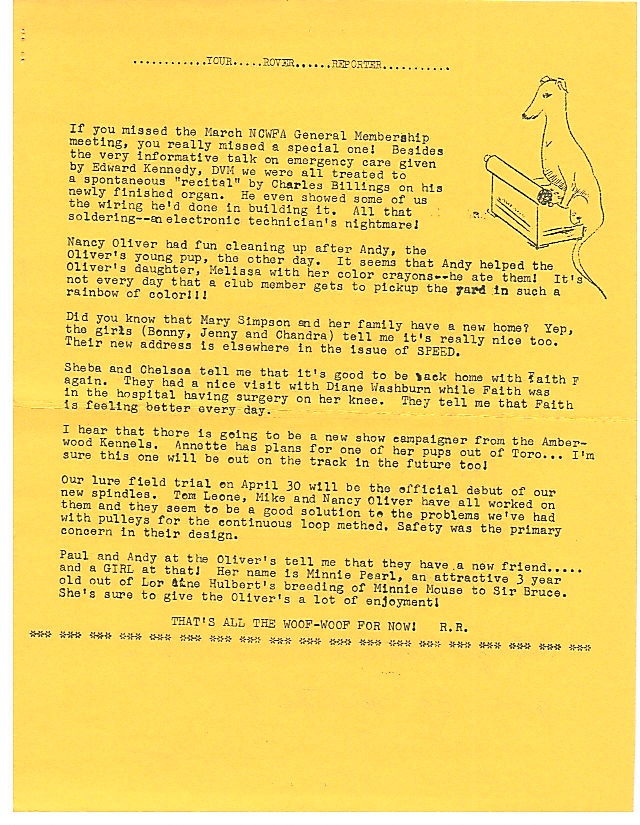 ............YOUR.....ROVER......REPORTER...........
If you missed the March NCWFA General Membership
meeting, you really missed a special one! Besides
the very informative talk on emergency care given
by Edward Kennedy, DVM we were all treated to
a spontaneous "recital" by Charles Billings on his
newly finished organ. He even showed some of us
the wiring he'd done in building it. All that
soldering--an electronic technician's nightmare!
Nancy Oliver had fun cleaning up after Andy, the
Oliver's young pup, the other day. It seems that Andy helped the
Oliver's daughter, Melissa with her color crayons--he ate them! It's
not every day that a club member gets to pickup the yard in such a
rainbow of color!!!
Did you know that Mary Simpson and her family have a new home? Yep,
the girls (Bonny, Jenny and Chandra) tell me it's really nice too.
Their new address is elsewhere in the issue of SPEED.
Sheba and Chelsea tell me that it's good to be back home with Faith F
again. They had a nice visit with Diane Washburn while Faith was
in the hospital having surgery on her knee. They tell me that Faith
is feeling better every day.
I hear that there is going to be a new show campaigner from the Amber-
wood Kennels. Annette has plans for one of her pups out of Toro... I'm
sure this one will be out on the track in the future too!
Our lure field trial on April 30 will be the official debut of our
new spindles. Tom Leone, Mike and Nancy Oliver have all worked on
them and they seem to be a good solution to the problems we've had
with pulleys for the continuous loop method. Safety was the primary
concern in their design.
Paul and Andy at the Oliver's tell me that they have a new friend.....
and a GIRL at that! Her name is Minnie Pearl, an attractive 3 year
old out of Lorraine Hulbert's breeding of Minnie Mouse to Sir Bruce.
She's sure to give the Oliver's a lot of enjoyment!
THAT'S ALL THE WOOF-WOOF FOR NOW! R.R.
*** *** *** *** *** *** *** *** *** *** *** *** *** *** *** *** *** *** ***